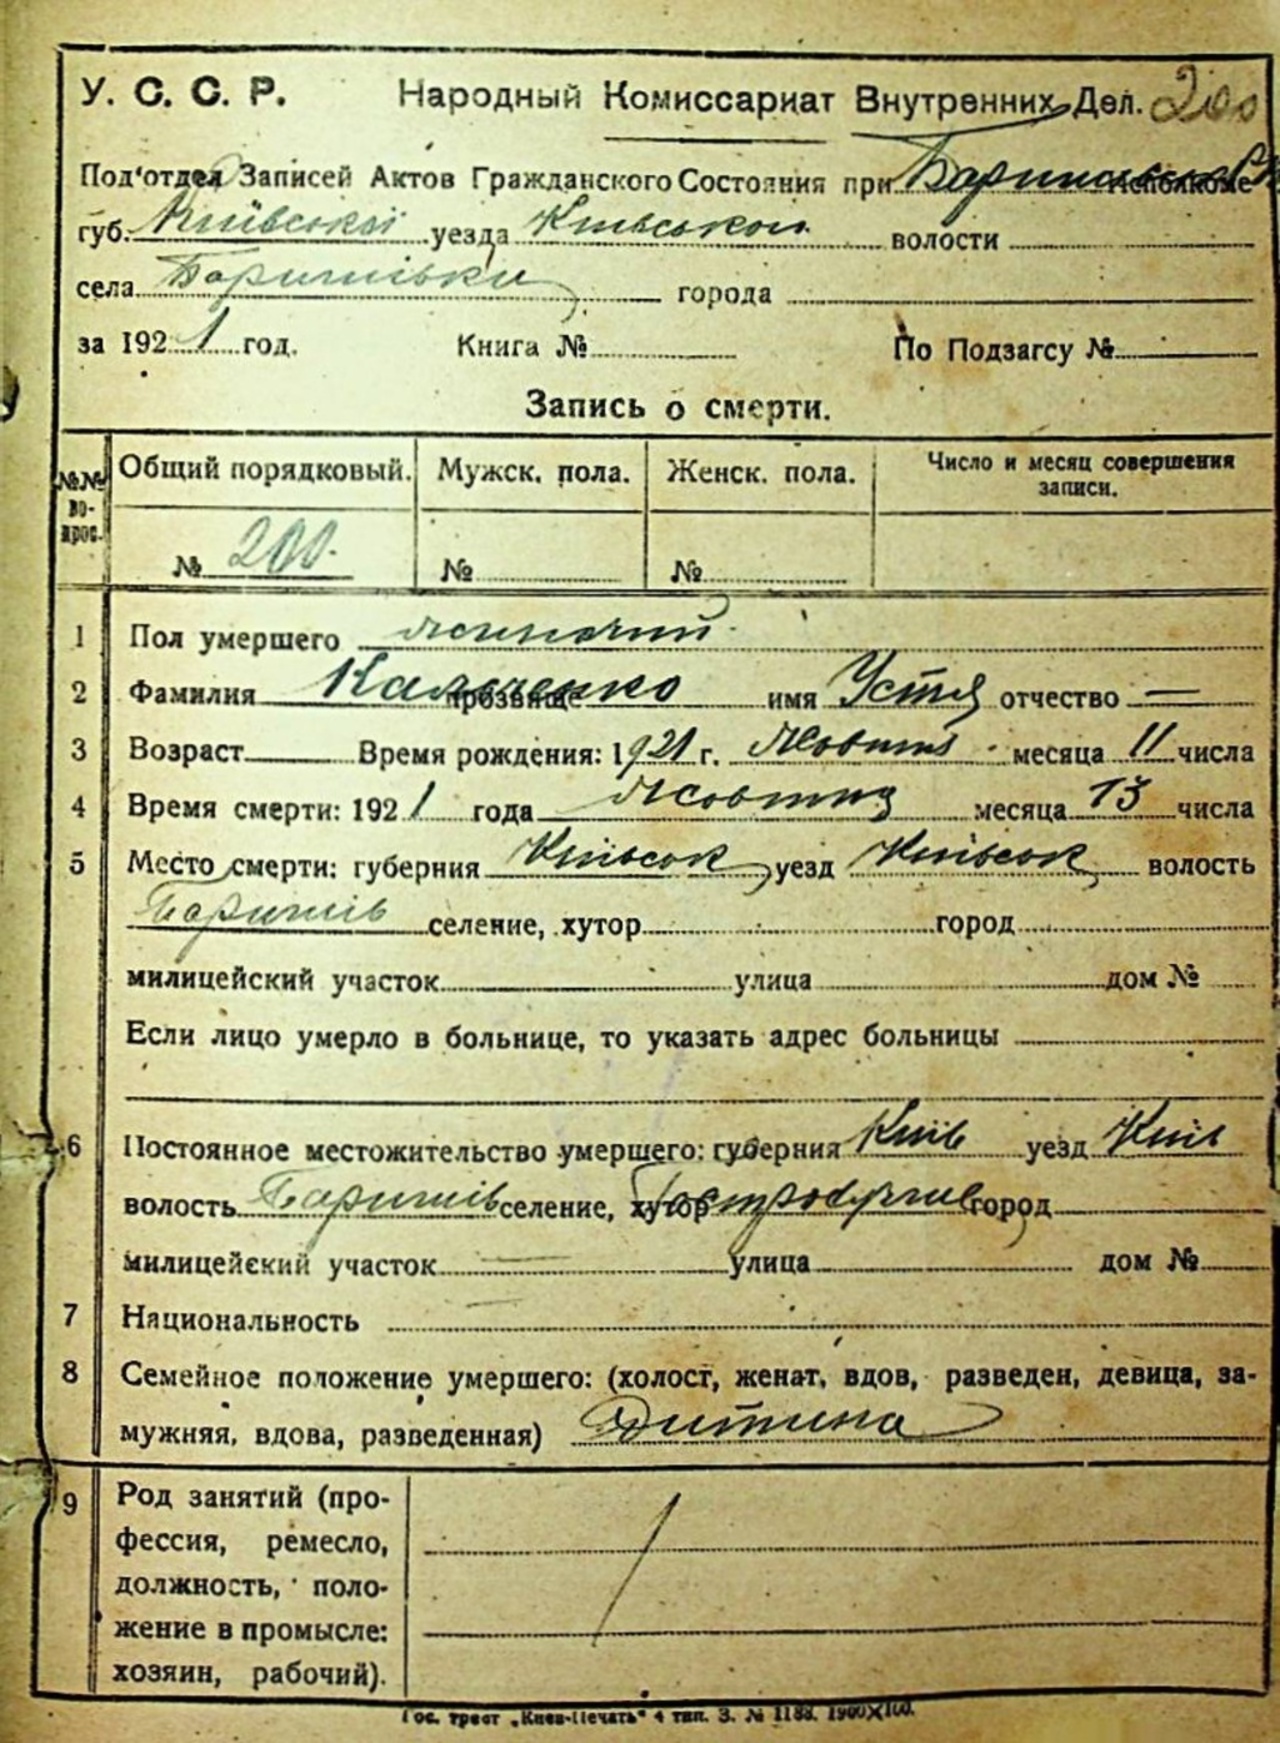 У. С. С. Р. Народный Комиссариат Внутренних Дел. 200
Под'отдел Записей Актов Гражданского Состояния при Исполкоме
губ. Київської уезда Київського волости
села Баришівки города
за 1921 год. Книга № По Подзагсу №
Запись о смерти.
№№ вопрос. Общий порядковый. Мужск. пола. Женск. пола. Число и месяц совершения записи.
№ 200. № №
1 Пол умершего жиночий
2 Фамилия Кальченко прозвище имя Устя отчество —
3 Возраст Время рождения: 1921 г. Жовтня месяца 11 числа
4 Время смерти: 1921 года Жовтня месяца 13 числа
5 Место смерти: губерния Київськ уезд Київськ волость
Баришів селение, хутор город
милицейский участок улица дом №
Если лицо умерло в больнице, то указать адрес больницы
6 Постоянное местожительство умершего: губерния Київ уезд Київ
волость Баришів селение, хутор город
милицейский участок улица дом №
7 Национальность
8 Семейное положение умершего: (холост, женат, вдов, разведен, девица, за-
мужняя, вдова, разведенная) Дитина
9 Род занятий (про-
фессия, ремесло,
должность, поло-
жение в промысле:
хозяин, рабочий).
Гос. трест „Киев-Печать" 4 тип. З. № 1188. 1900X100.